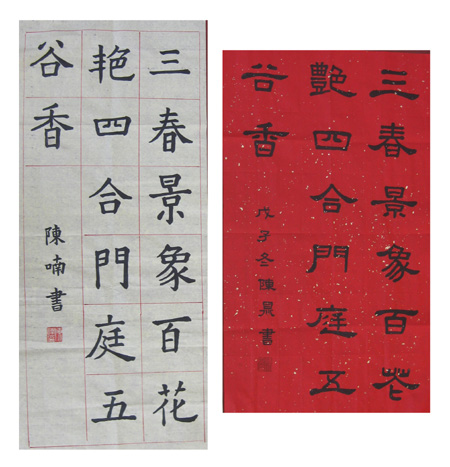 三春景象百花
艳四合門庭五
谷香
陳喃書
三春景象百花
艷四合門庭五
谷香
戊子冬陳晨書